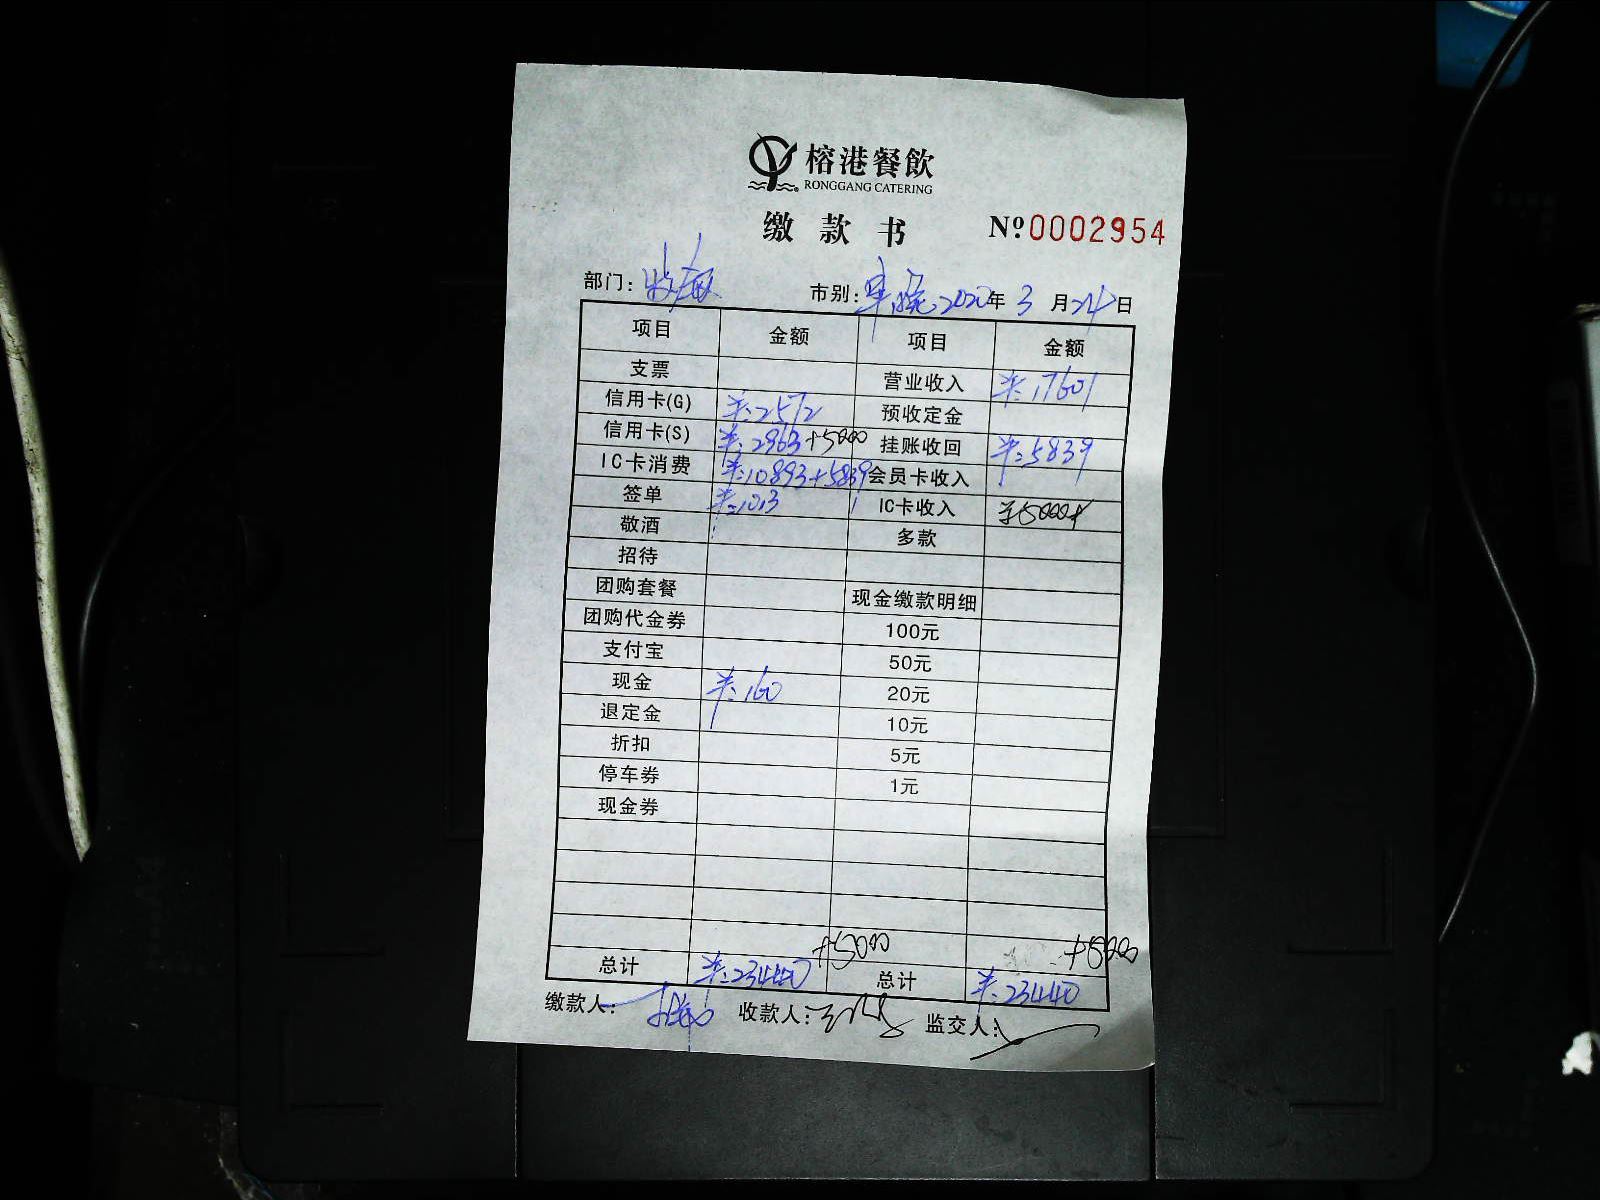 榕港餐飲
RONGGANG CATERING
缴款书 №0002954
部门: 市别: 2020年 3 月 24 日
项目 金额 项目 金额
支票 营业收入 ¥:17601
信用卡(G) ¥:2572 预收定金
信用卡(S) ¥:2963+5000 挂账收回 ¥:5839
IC卡消费 ¥:10893+5839 会员卡收入
签单 ¥:1013 IC卡收入 ¥5000
敬酒 多款
招待
团购套餐 现金缴款明细
团购代金券 100元
支付宝 50元
现金 ¥:160 20元
退定金 10元
折扣 5元
停车券 1元
现金券
+5000 +5000
总计 ¥:23440 总计 ¥:23440
缴款人: 收款人: 监交人: